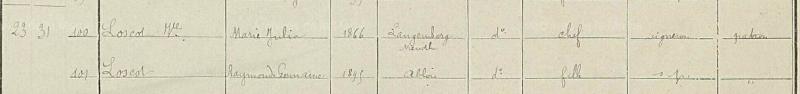 23 31 100 Loscot Vve Marie Julia 1866 Langenberg d° chef vigneron patron
101 Loscot Raymonde Germaine 1895 Ablois d° fille s.p. "